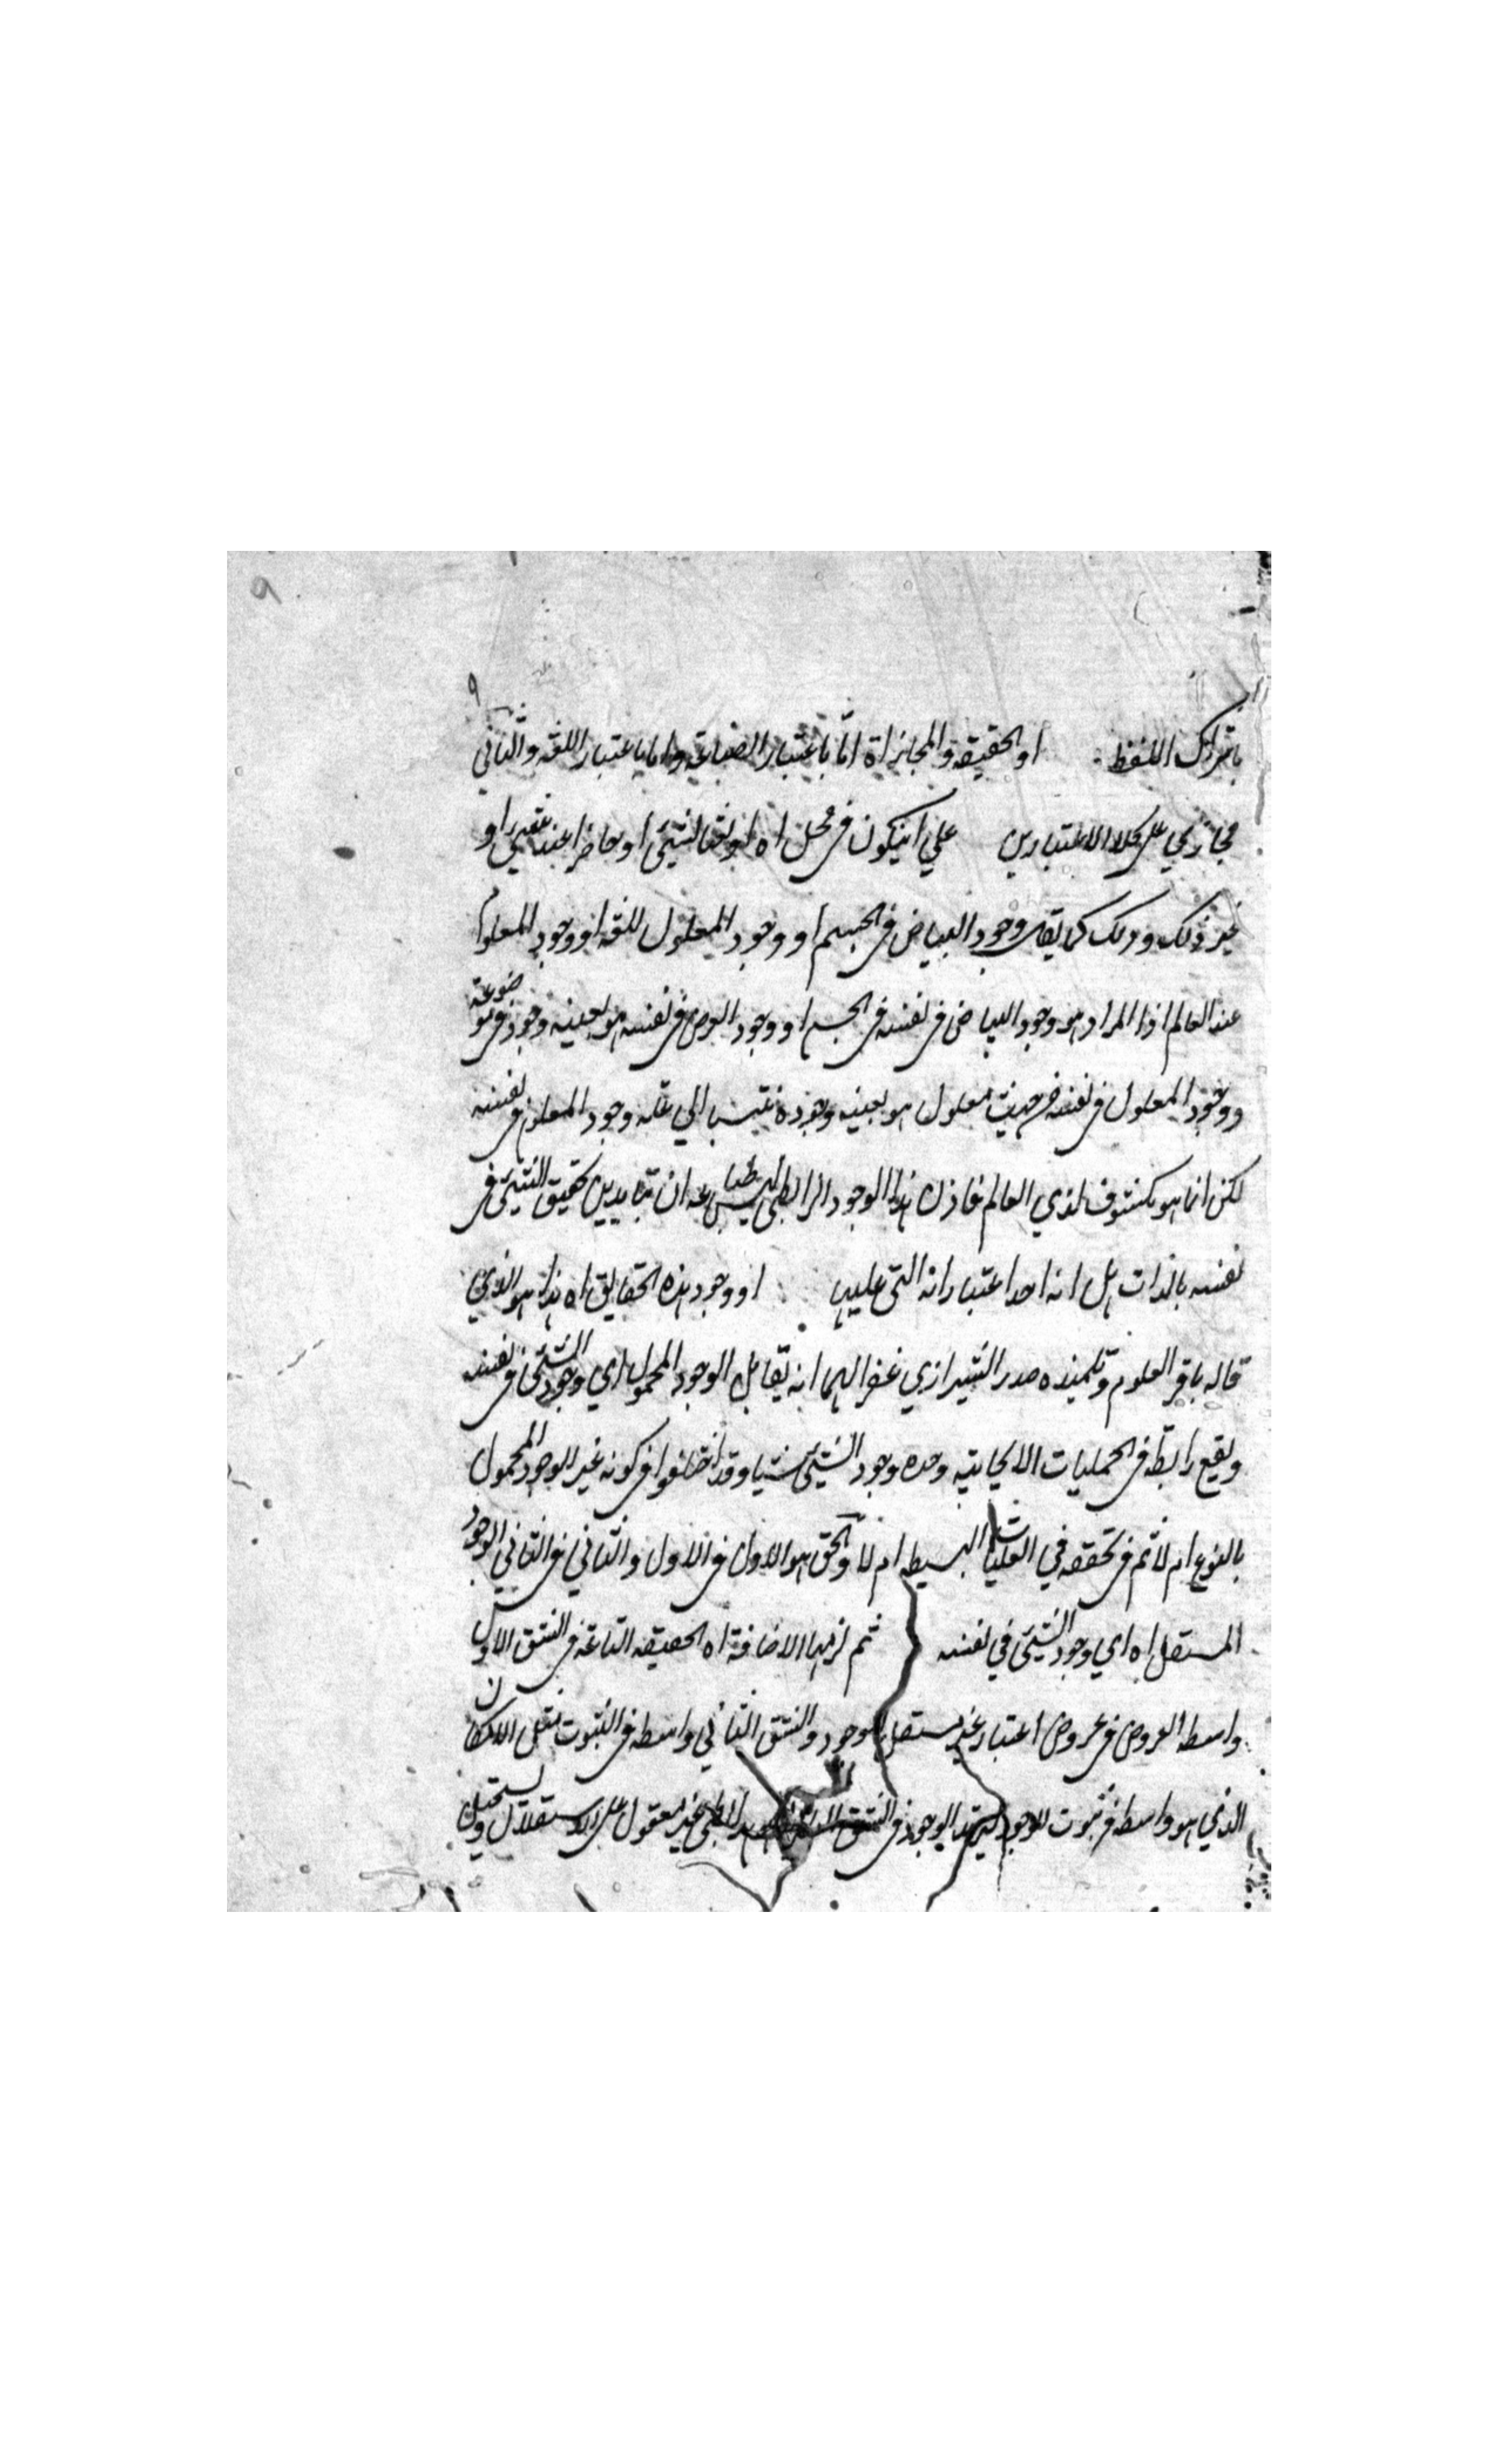 ٩
باشتراك اللفظ او الحقيقة والمجاز اه امّا باعتبار الصناعة واما باعتبار اللغة والثاني
مجازي على كلا الاعتبارين علي ان يكون في محل اه او نعتا لشيئ او حاضرا عند او
غير ذلك وذلك كما يقال وجود البياض في الجسم او وجود المعلول للعلة او وجود المعلوم
عند العالم اذا المراد هو وجود البياض في نفسه في الجسم او وجود العرض في نفسه هو بعينه وجوده في موضوعه
ووجود المعلول في نفسه من حيث معلول هو بعينه وجوده منتسبا الي علته وجود المعلوم في نفسه
لكن انما هو مكشوف لذي العالم فاذن هذا الوجود الرابطي ليس طباعه ان تباين تحقق الشيئ في
نفسه بالذات بل انه احد اعتباراته التي عليها او وجود هذه الحقايق اه هذا هو الذي
قاله باقر العلوم وتلميذه صدر الشيرازي غفر الهما انه يقابل الوجود المحمول اي وجود الشيئ في نفسه
ويقع رابطة في الحمليات الايجابية وحده وجود الشيئ شيا وقد اختلفوا في كونه غير الوجود المحمول
بالنوع ام لا ثم في تحققه في الهليات البسيطه ام لا والحق هو الاول في الاول والثاني في الثاني الوجود
المستقل اه اي وجود الشيئ في نفسه ثم لزمها الاضافة اه الحقيقة في الشق الاول
واسطه العروض في عروض اعتبار غير مستقل الوجود والشق الثاني واسطه في الثبوت الامكان
الذي هو واسطه في ثبوت الوجود الوجود في الشق رابطي غير معقول على الاستقلال ويستحيل